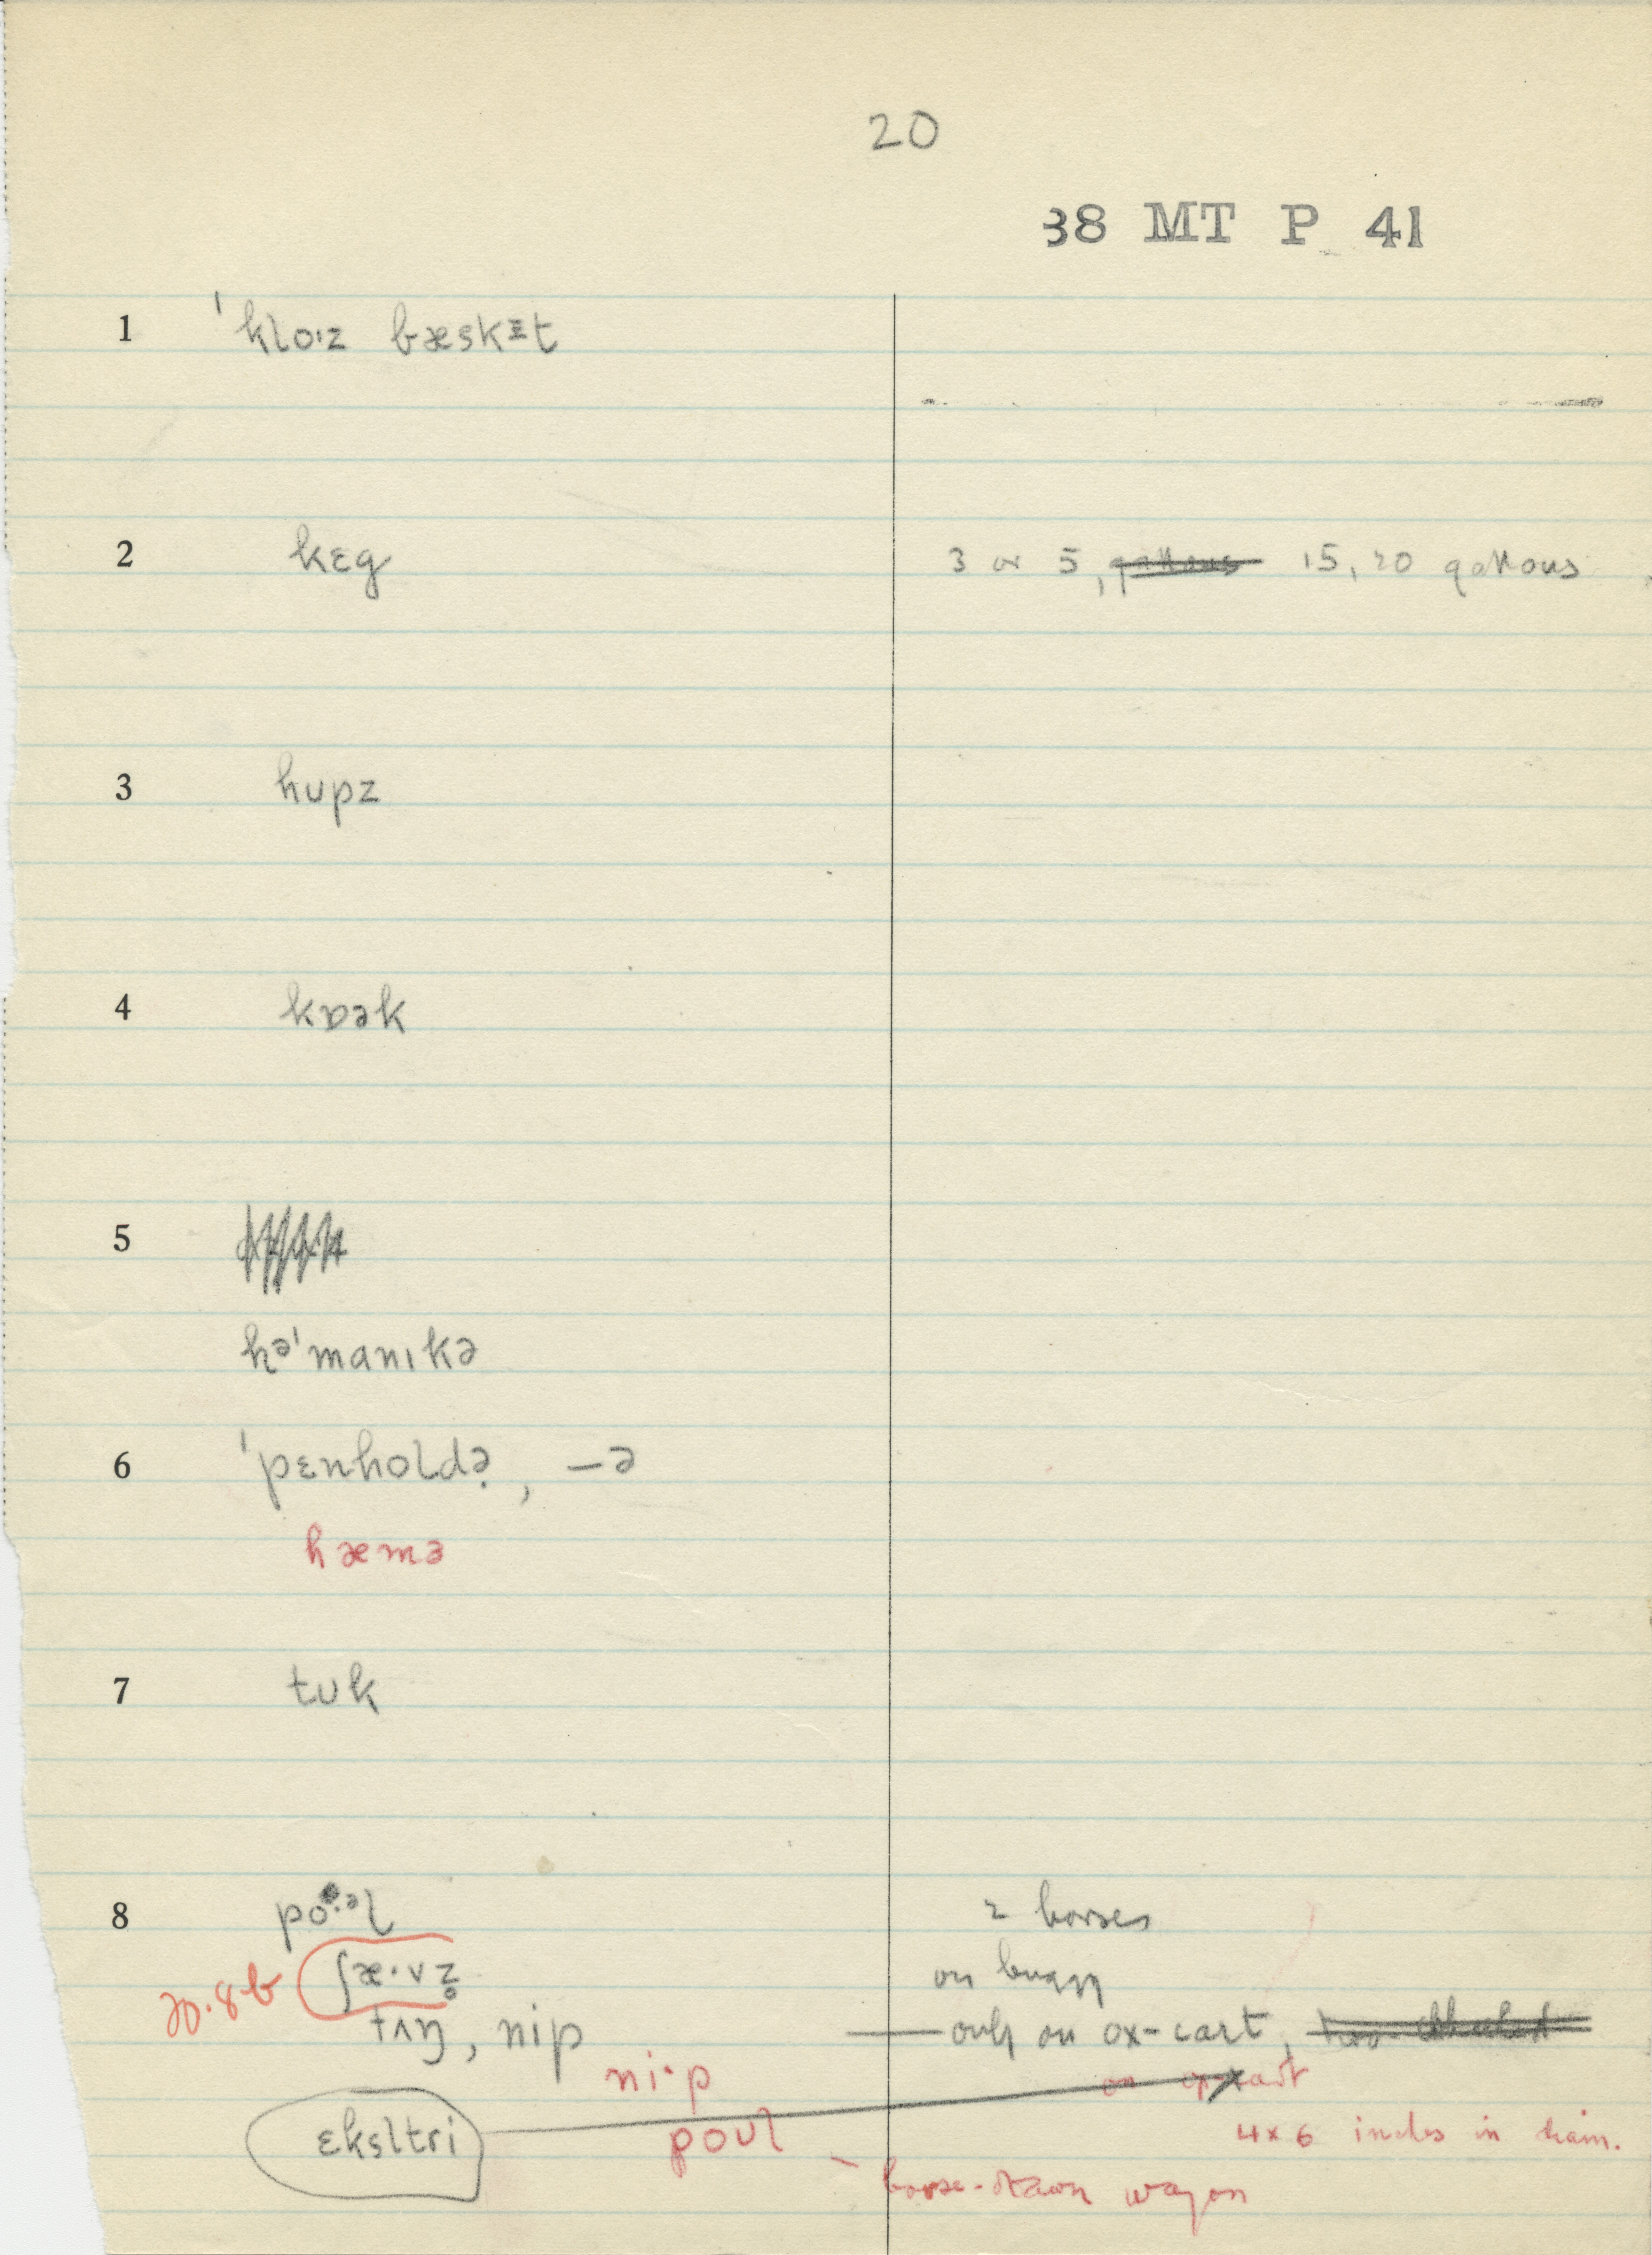 20
38 MT P 41
1 ˈkloˑz bæskɪt
2 kɛg 3 or 5, gallons 15, 20 gallons
3 hupz
4 kɒək
5
həˈmanɪkə
6 ˈpɛnholdə̣, —ə
hæmə
7 tuk
8 poˑəl 2 horses
20.8b ʃæ·vz̥ on buggy
tʌŋ, nip — only on ox-cart,
ni·p on ox-cart
poul 4 x 6 inches in diam.
ɛksltri
– horse-drawn wagon